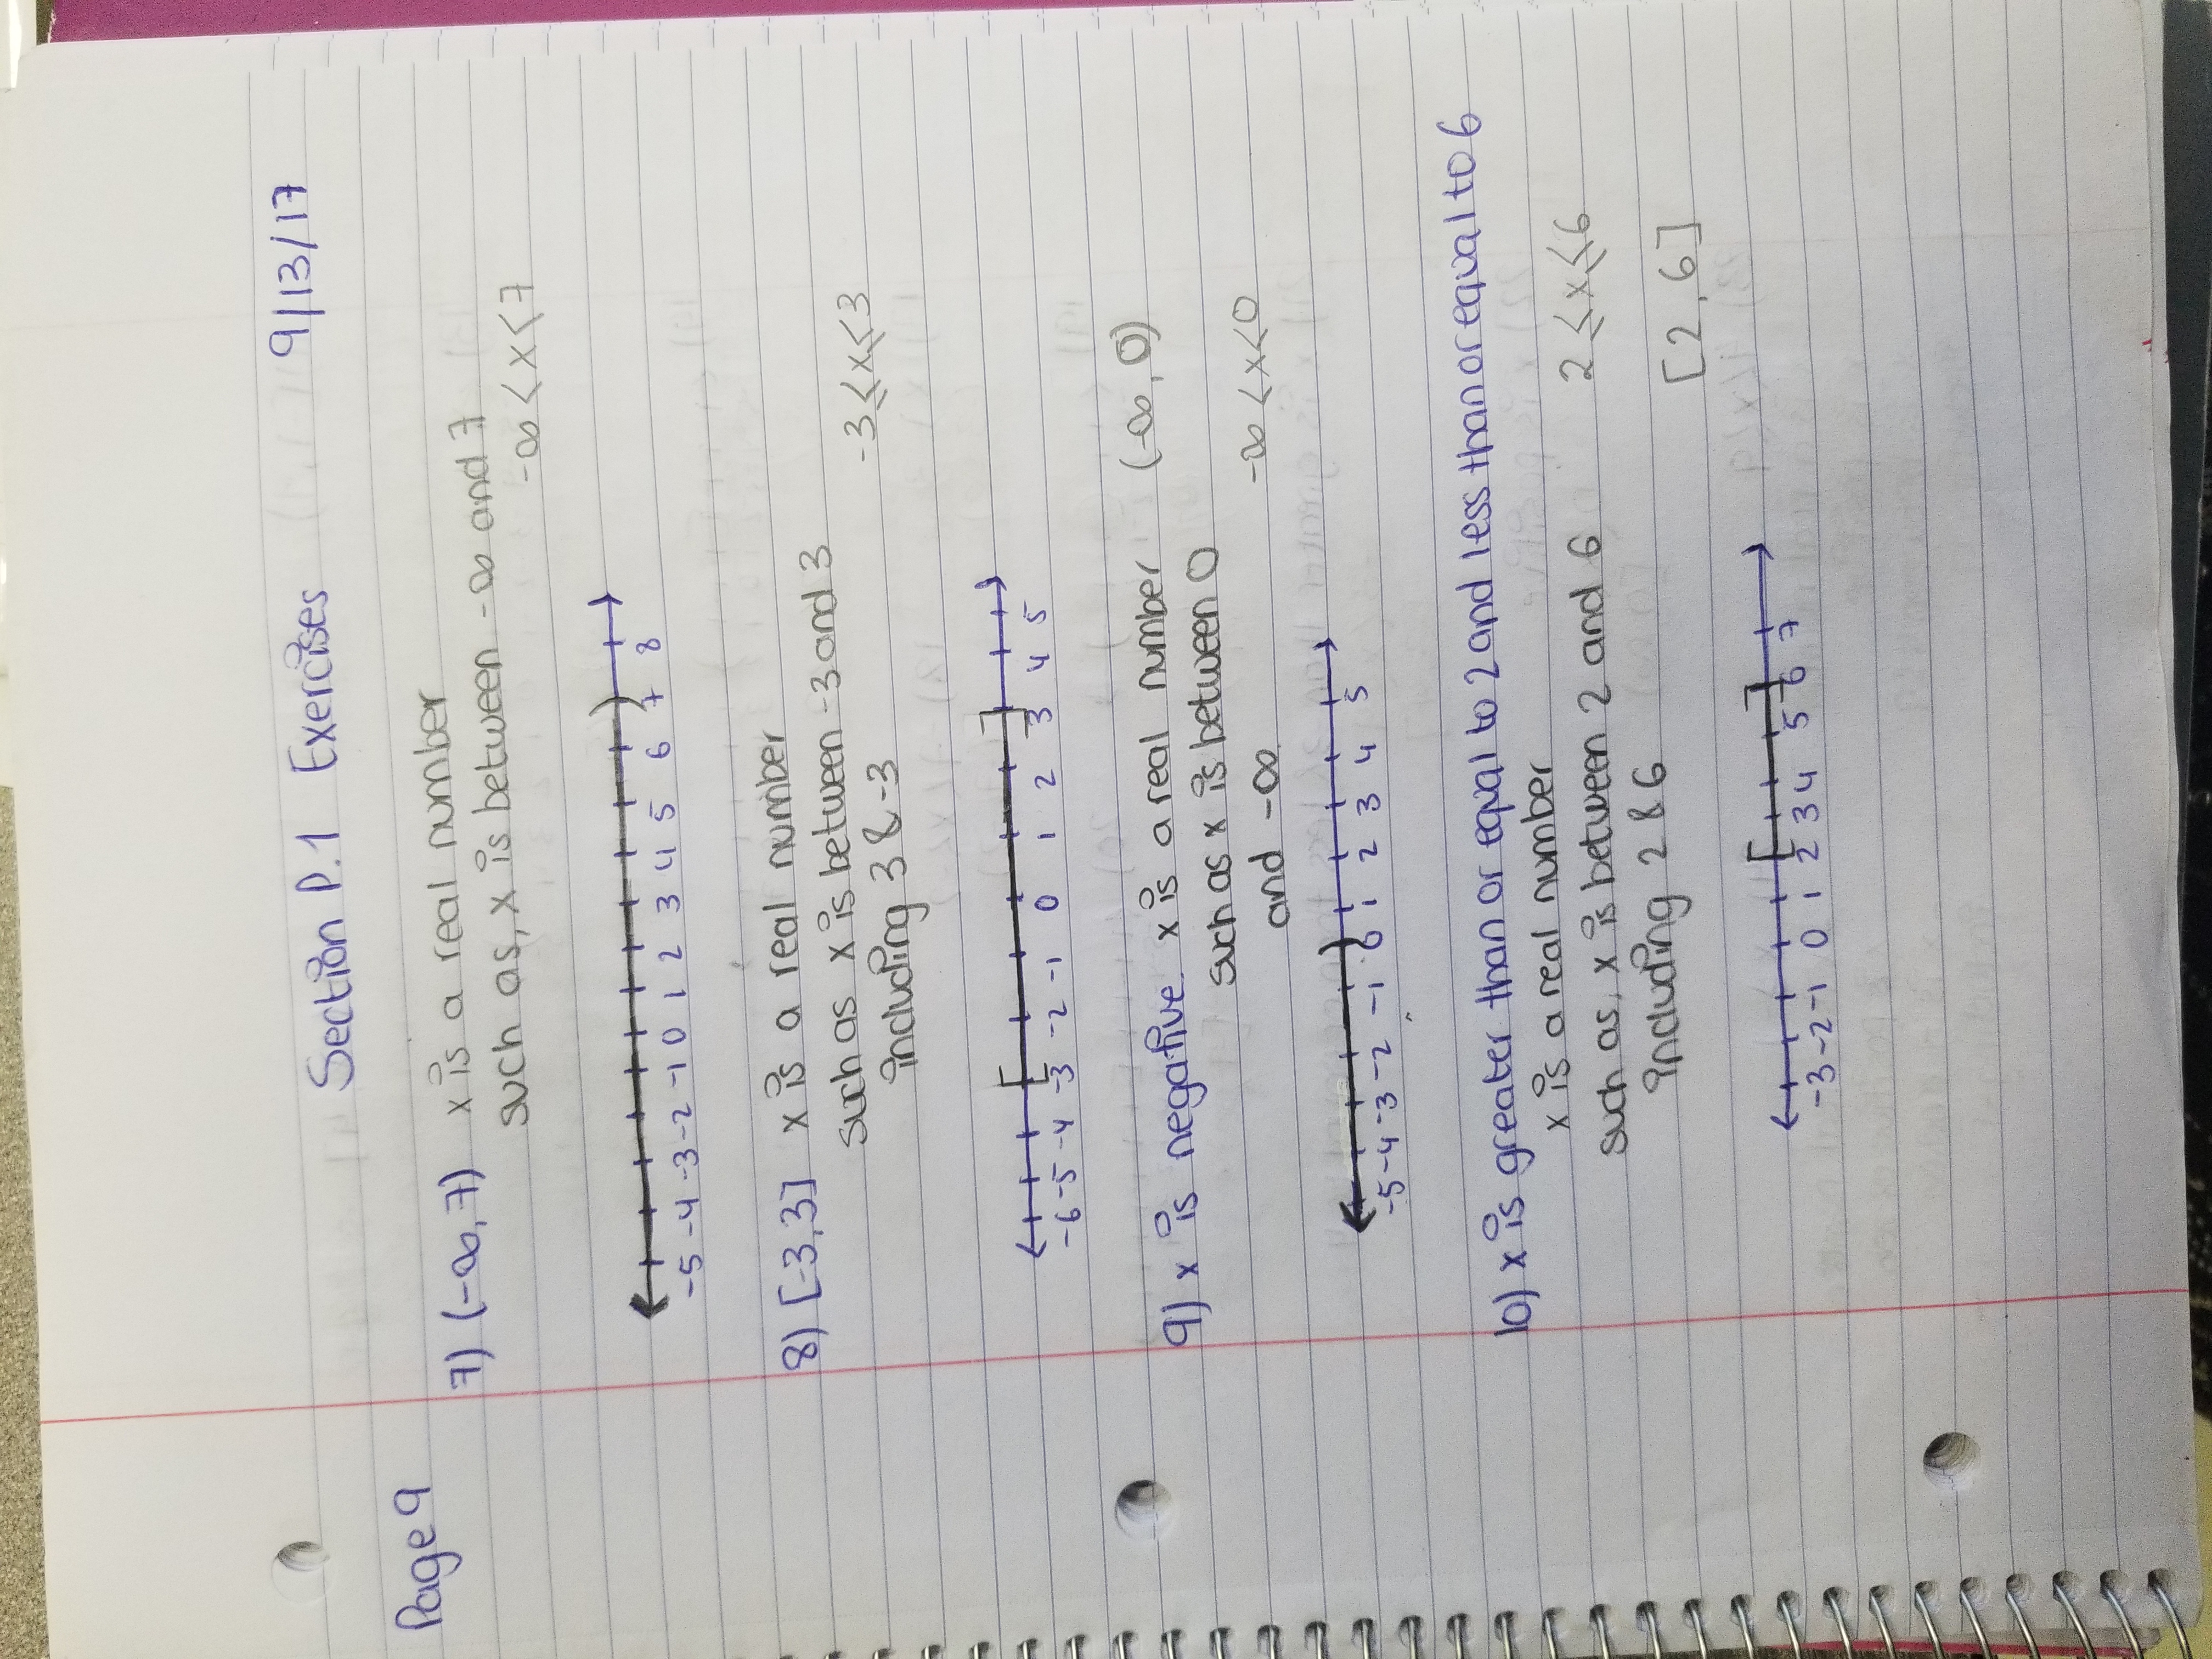 Section P.1 Exercises 9/13/17
Page 9
7) (-∞, 7) x is a real number
such as, x is between -∞ and 7
-∞ < x < 7
-5 -4 -3 -2 -1 0 1 2 3 4 5 6 7 8
8) [-3, 3] x is a real number
such as x is between -3 and 3
including 3 & -3
-3 ≤ x ≤ 3
-6 -5 -4 -3 -2 -1 0 1 2 3 4 5
9) x is negative. x is a real number (-∞, 0)
such as x is between 0
and -∞
-∞ < x < 0
-5 -4 -3 -2 -1 0 1 2 3 4 5
10) x is greater than or equal to 2 and less than or equal to 6
x is a real number
such as, x is between 2 and 6 2 ≤ x ≤ 6
including 2 & 6 [2, 6]
-3 -2 -1 0 1 2 3 4 5 6 7